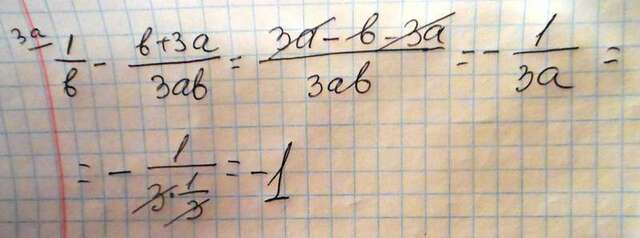 3a 1/b - (b+3a)/3ab = (3a - b - 3a)/3ab = - 1/3a =
= - 1/(3·1/3) = -1